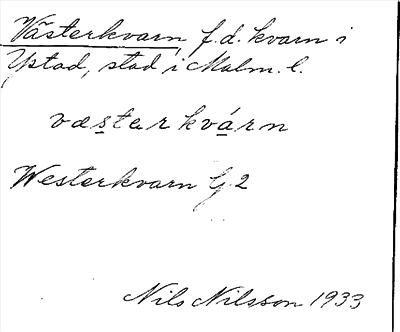 Västerkvarn f.d. kvarn i
Ystad, stad i Malm. l.
væstarkvárn
Westerkvarn G 2
Nils Nilsson 1933